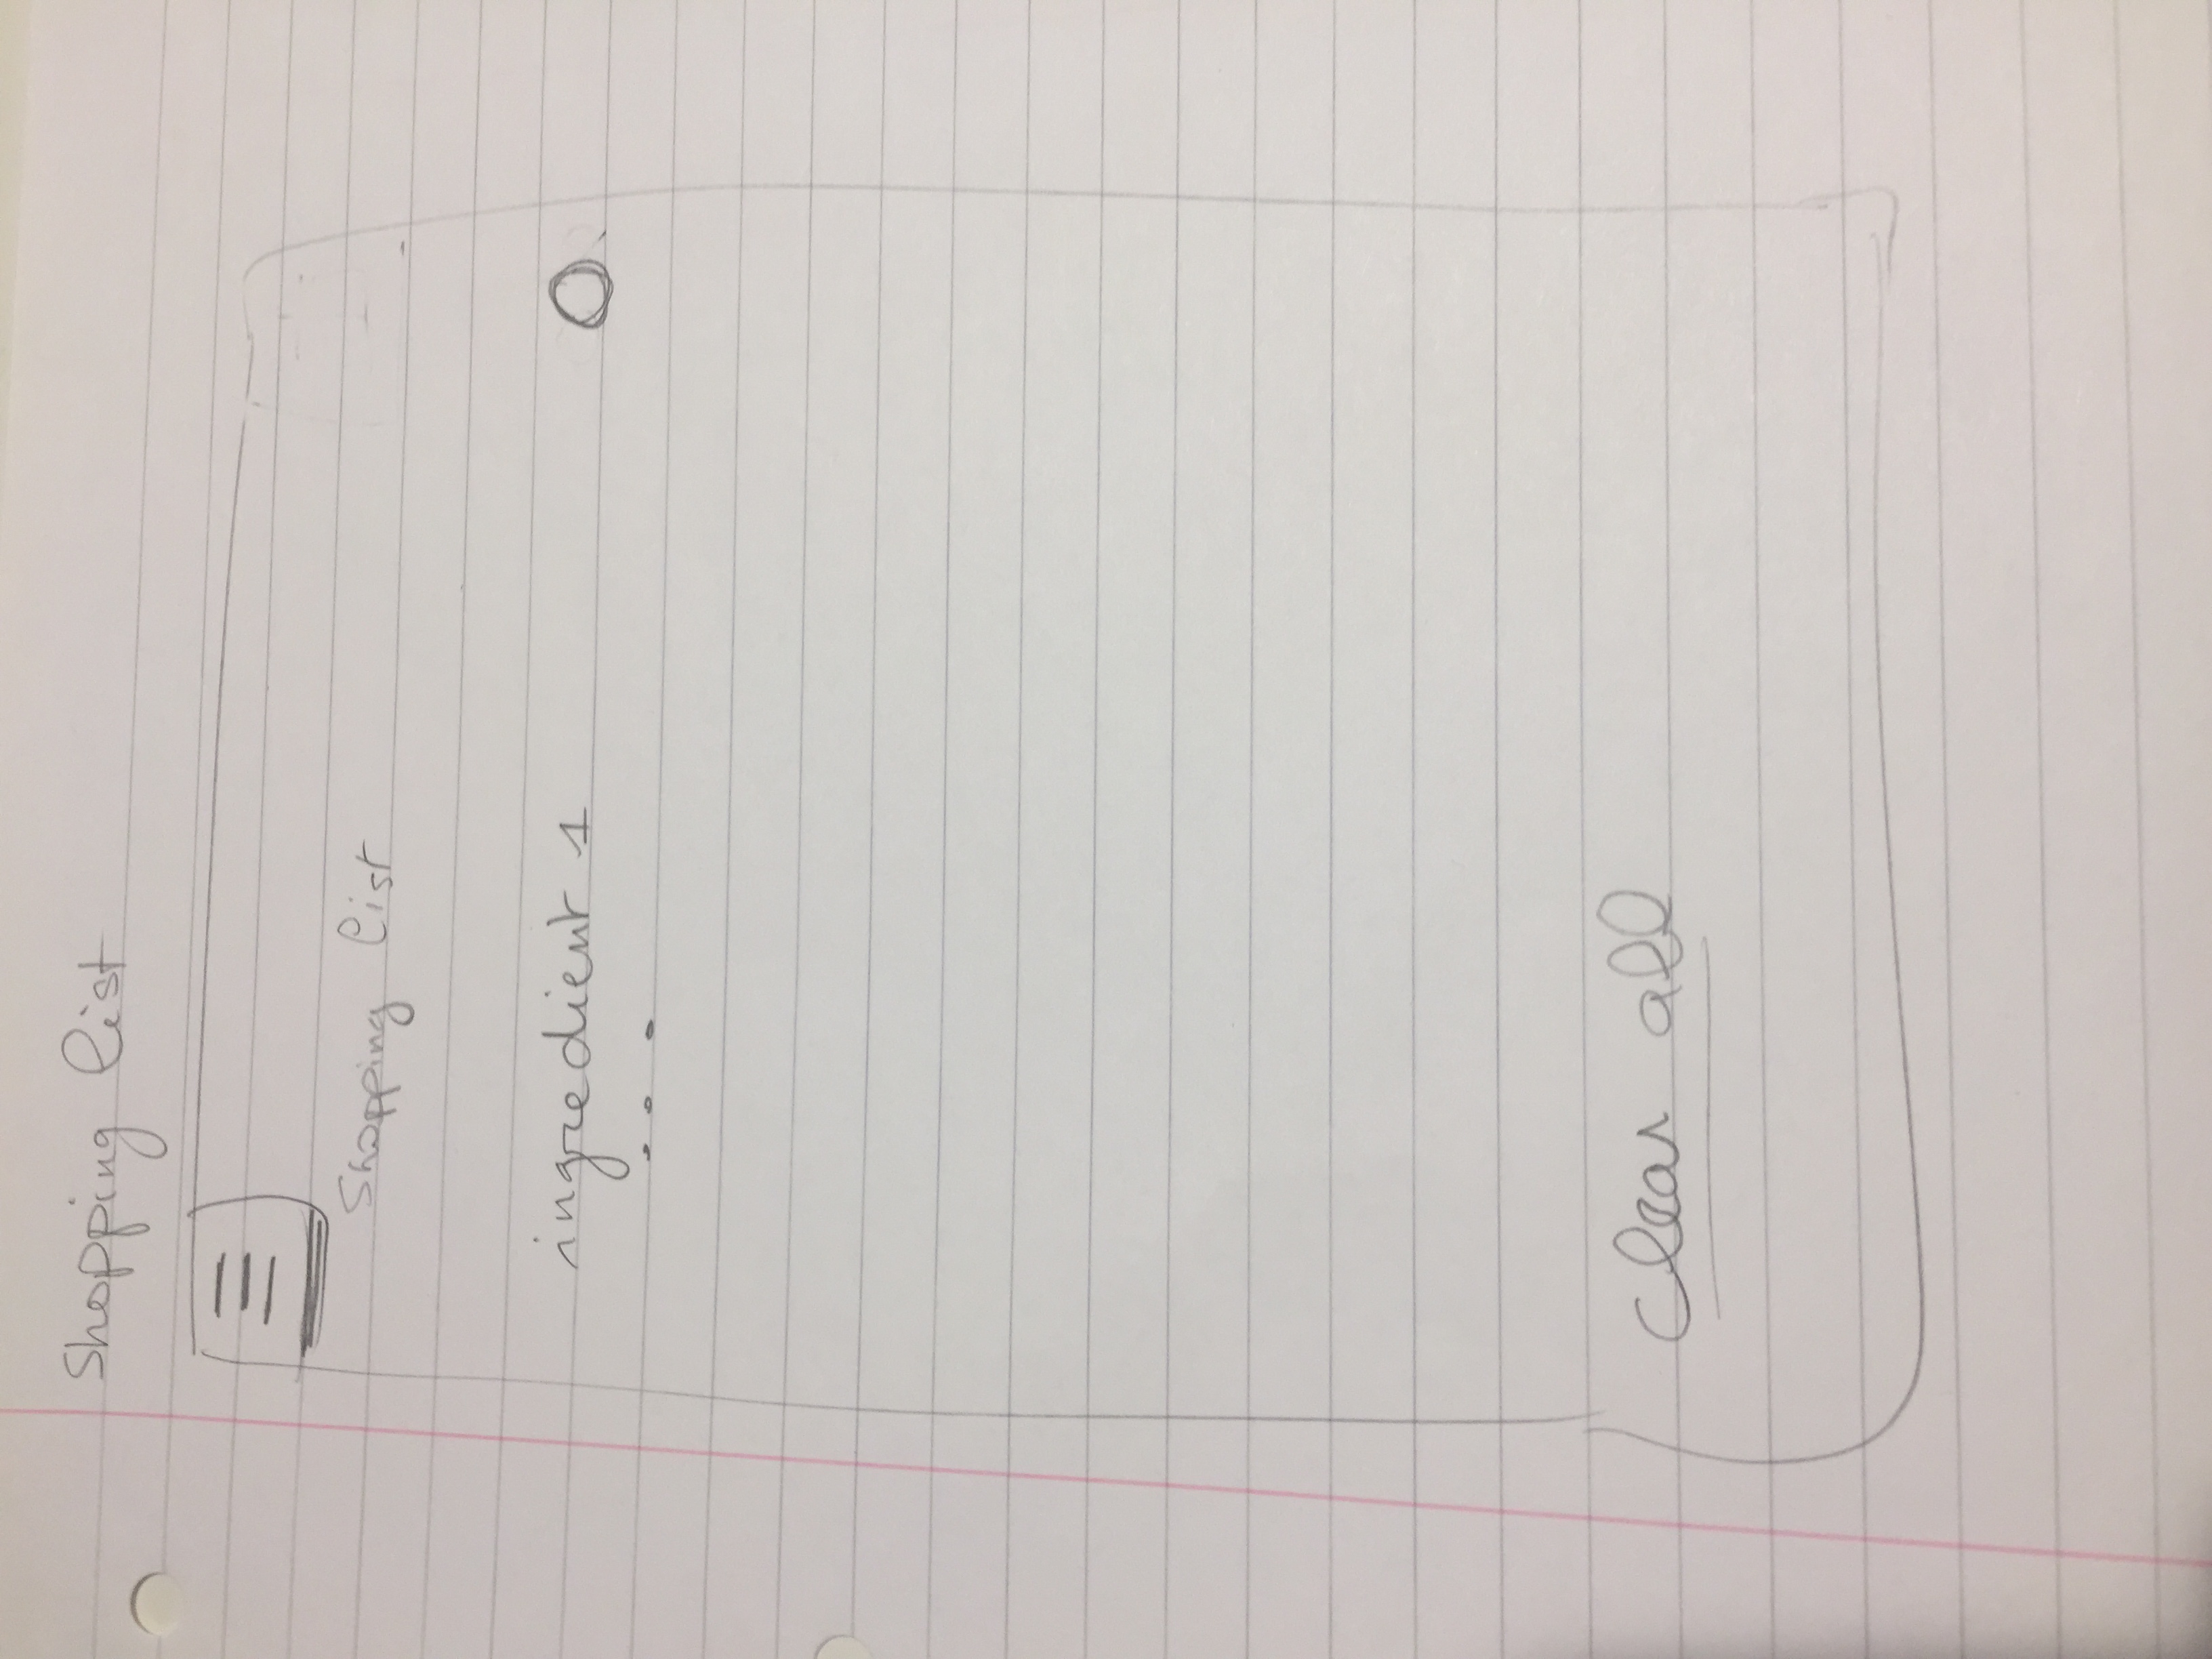 Shopping list
Shopping list
ingredient 1
...
clear all